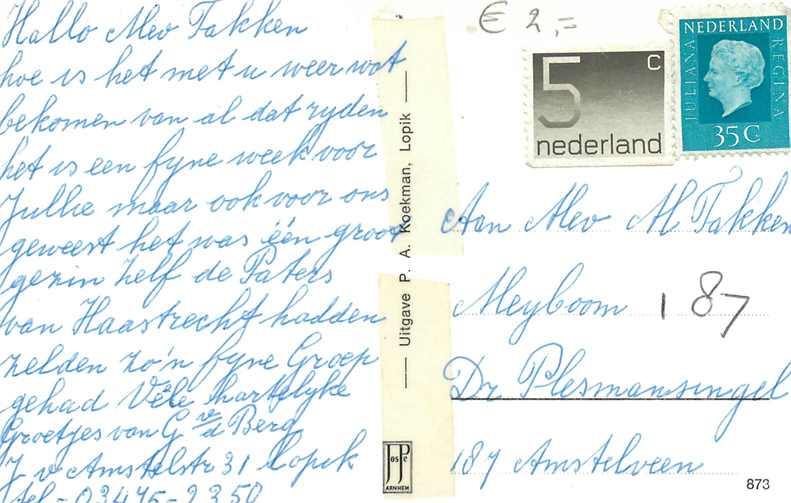 Hallo Mev Takken
hoe is het met u weer wat
bekomen van al dat ryden
het is een fyne week voor
Jullie maar ook voor ons
geweest het was één groot
gezin zelf de Paters
van Haastrecht hadden
zelden zo'n fyne Groep
gehad Véle hartelyke
Groetjes van G v d Berg
J v Amstelstr 31 Lopik
tel - 03475-2350
Uitgave P. A. Koekman, Lopik
JosPé
ARNHEM
€ 2,=
5 c
nederland
NEDERLAND
JULIANA
REGINA
35 C
Aan Mev M Takken
Meyboom 187
Dr Plesmansingel
187 Amstelveen
873